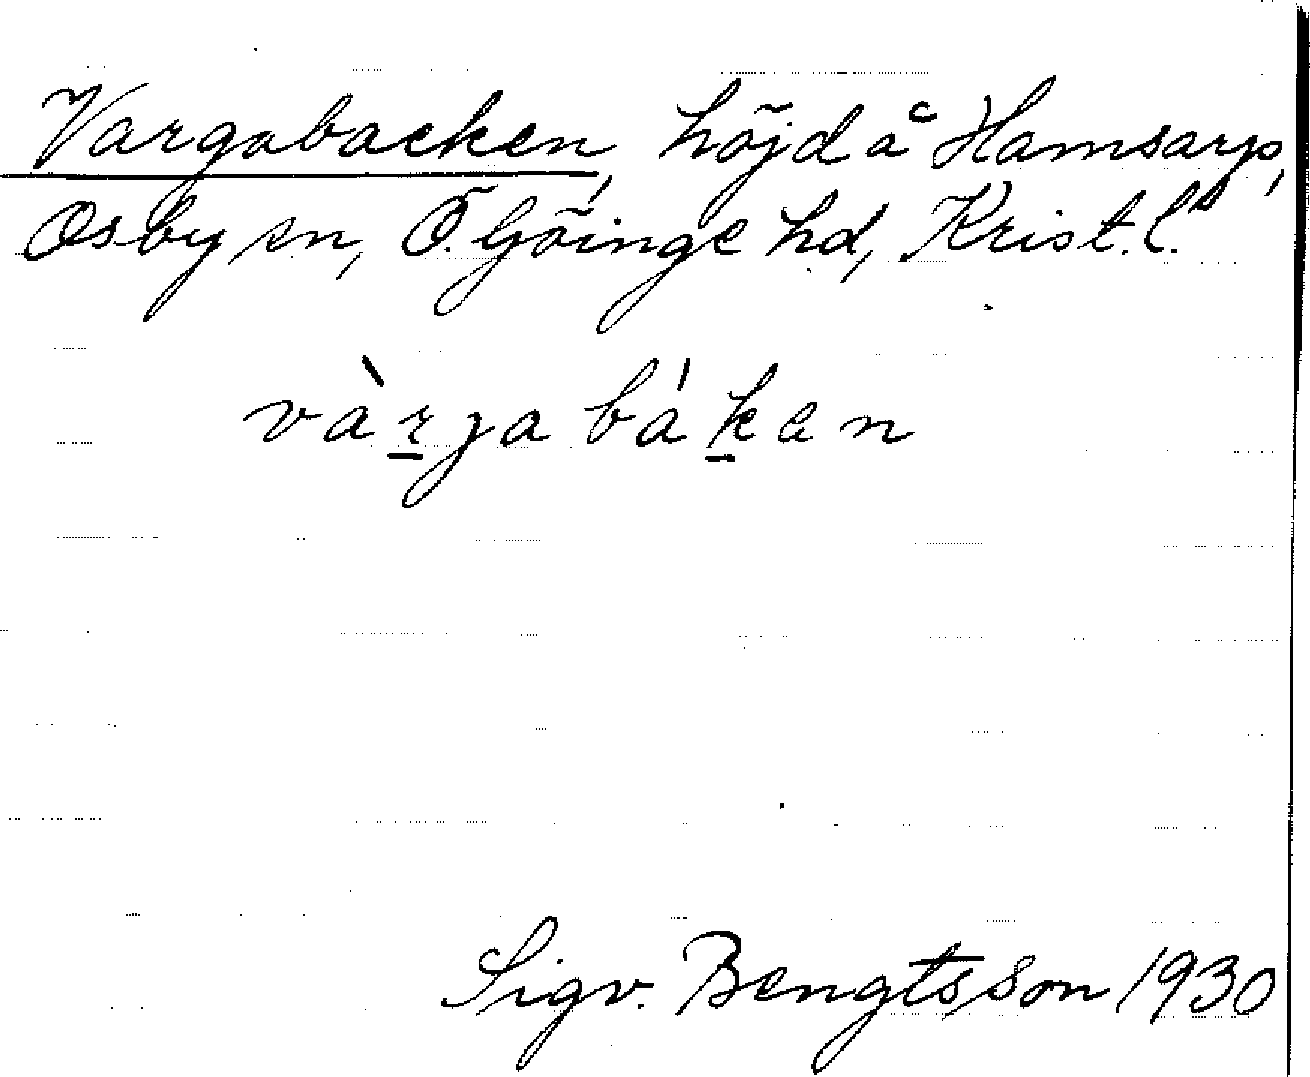 Vargabacken, höjd å Hamsarp,
Osby sn, Ö. Göinge hd, Krist. l.
vàrgabákan
Sigv. Bengtsson 1930